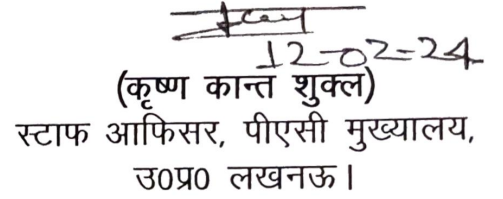 12-02-24
(कृष्ण कान्त शुक्ल)
स्टाफ आफिसर, पीएसी मुख्यालय,
उ०प्र० लखनऊ।